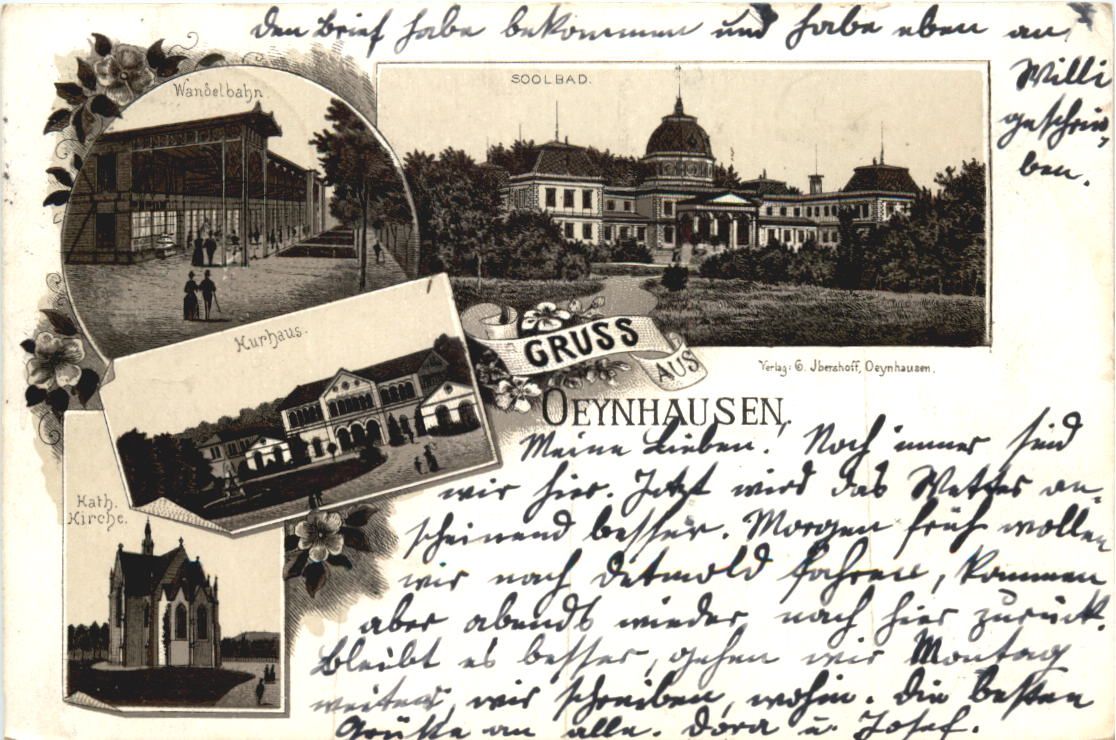 den Brief habe bekommen und habe eben an
Willi
geschrie,
ben.
Wandelbahn.
SOOLBAD.
Kurhaus.
GRUSS
AUS
OEYNHAUSEN,
Verlag: G. Jbershoff, Oeynhausen.
Kath.
Kirche.
Meine Lieben. Noch immer sind
wir hier. Jetzt wird das Wetter an-
scheinend besser. Morgen früh wollen
wir nach Detmold fahren, kommen
aber abends wieder nach hier zurück.
Bleibt es besser, gehen wir Montag
weiter, wir schreiben, wohin. Die besten
Grüße an alle. Dora u. Josef.